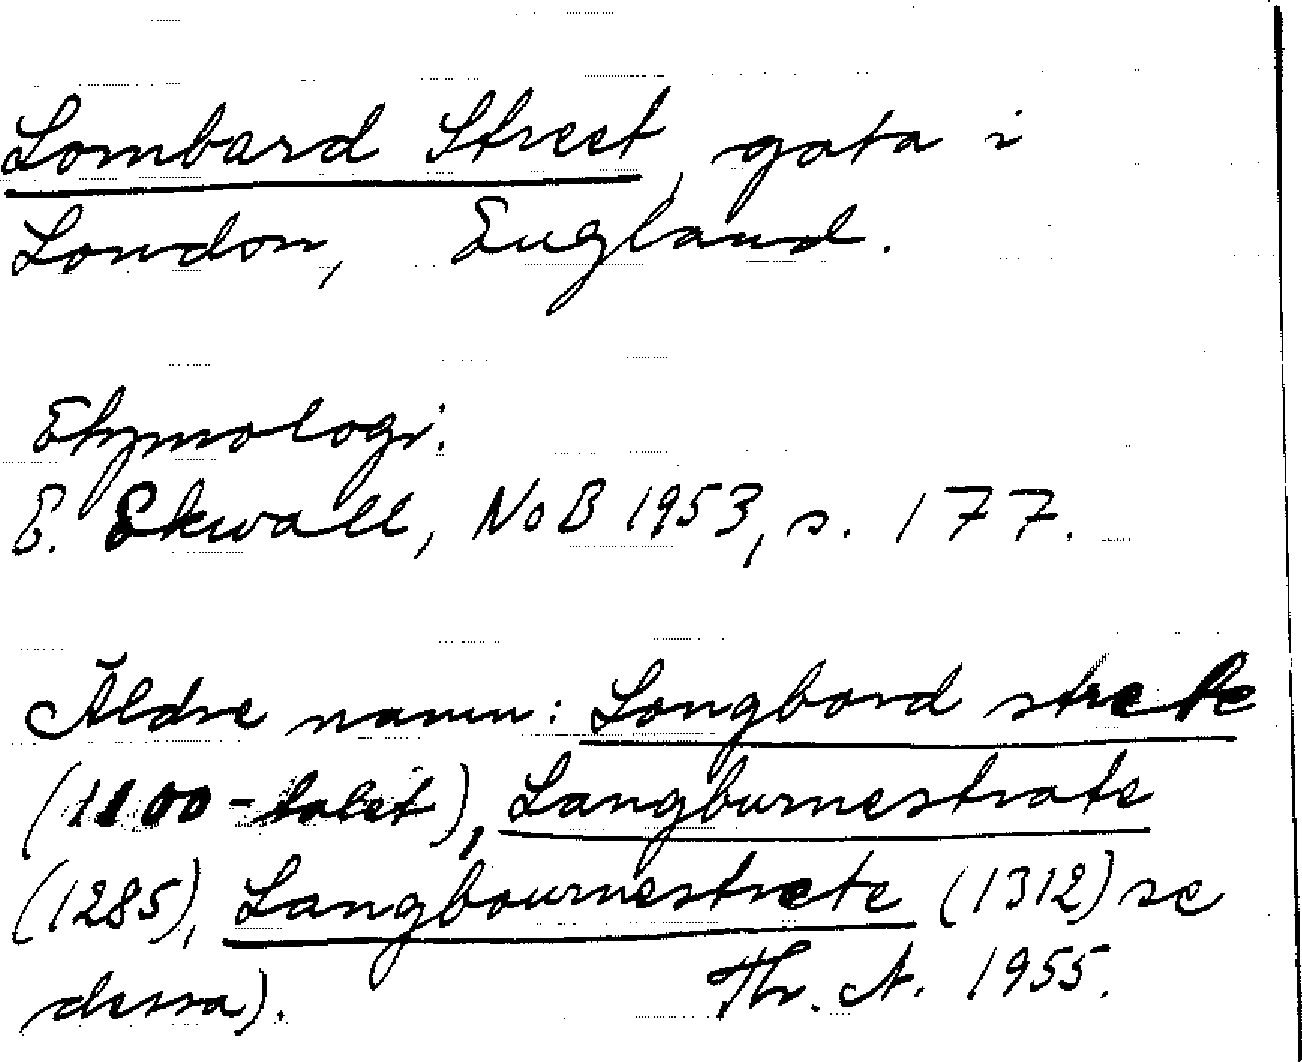 Lombard Street, gata i
London, England.
Etymologi:
E. Ekwall, NoB 1953, s. 177.
Äldre namn: Longbord strete
(1100-talet), Langburnestrate
(1285), Langbournestrete (1312) se
dessa).
Thr. A. 1955.